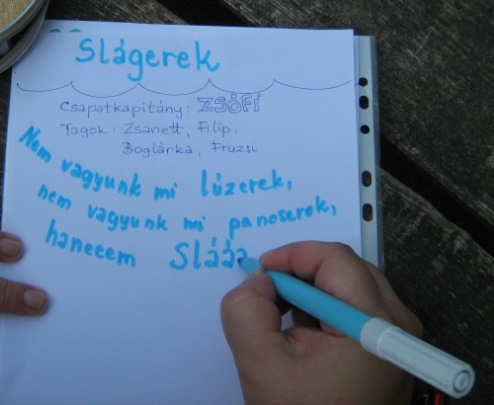 Slágerek
Csapatkapitány: ZSÓFI
Tagok: Zsanett, Filip,
Boglárka, Fruzsi
Nem vagyunk mi lúzerek,
nem vagyunk mi panoserok,
haneeem Slááá